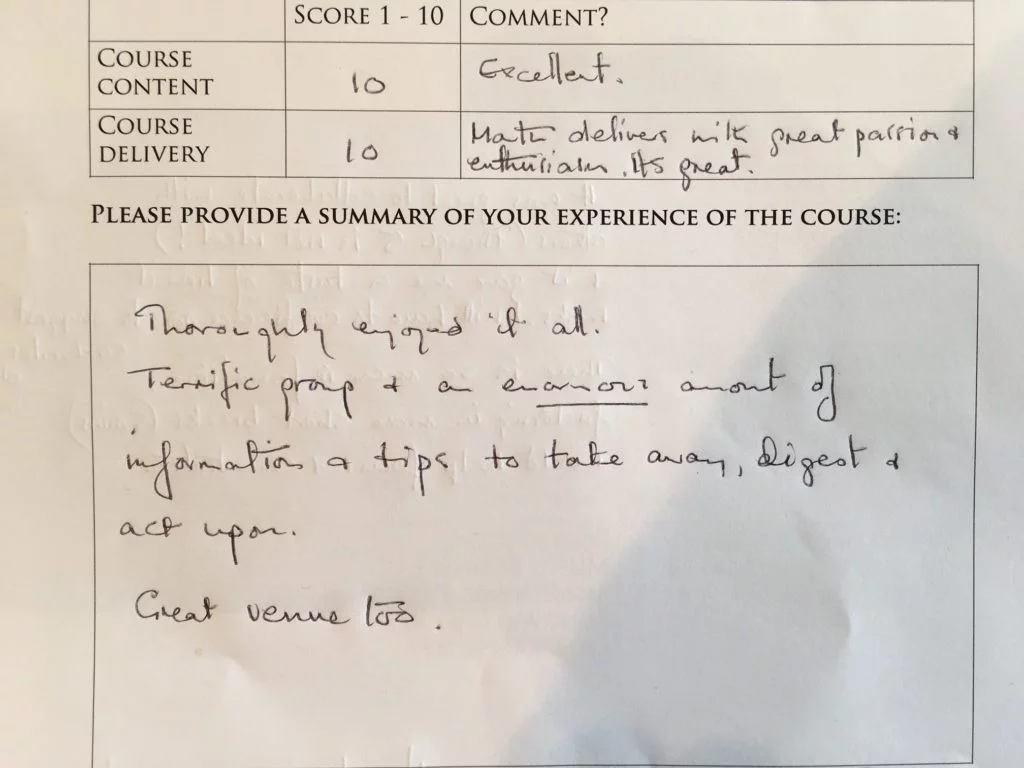 SCORE 1 - 10 COMMENT?
COURSE
CONTENT 10 Excellent.
COURSE
DELIVERY 10 Matt delivers with great passion &
enthusiasm. Its great.
PLEASE PROVIDE A SUMMARY OF YOUR EXPERIENCE OF THE COURSE:
Thoroughly enjoyed it all.
Terrific group & an enormous amount of
information & tips to take away, digest &
act upon.
Great venue too.